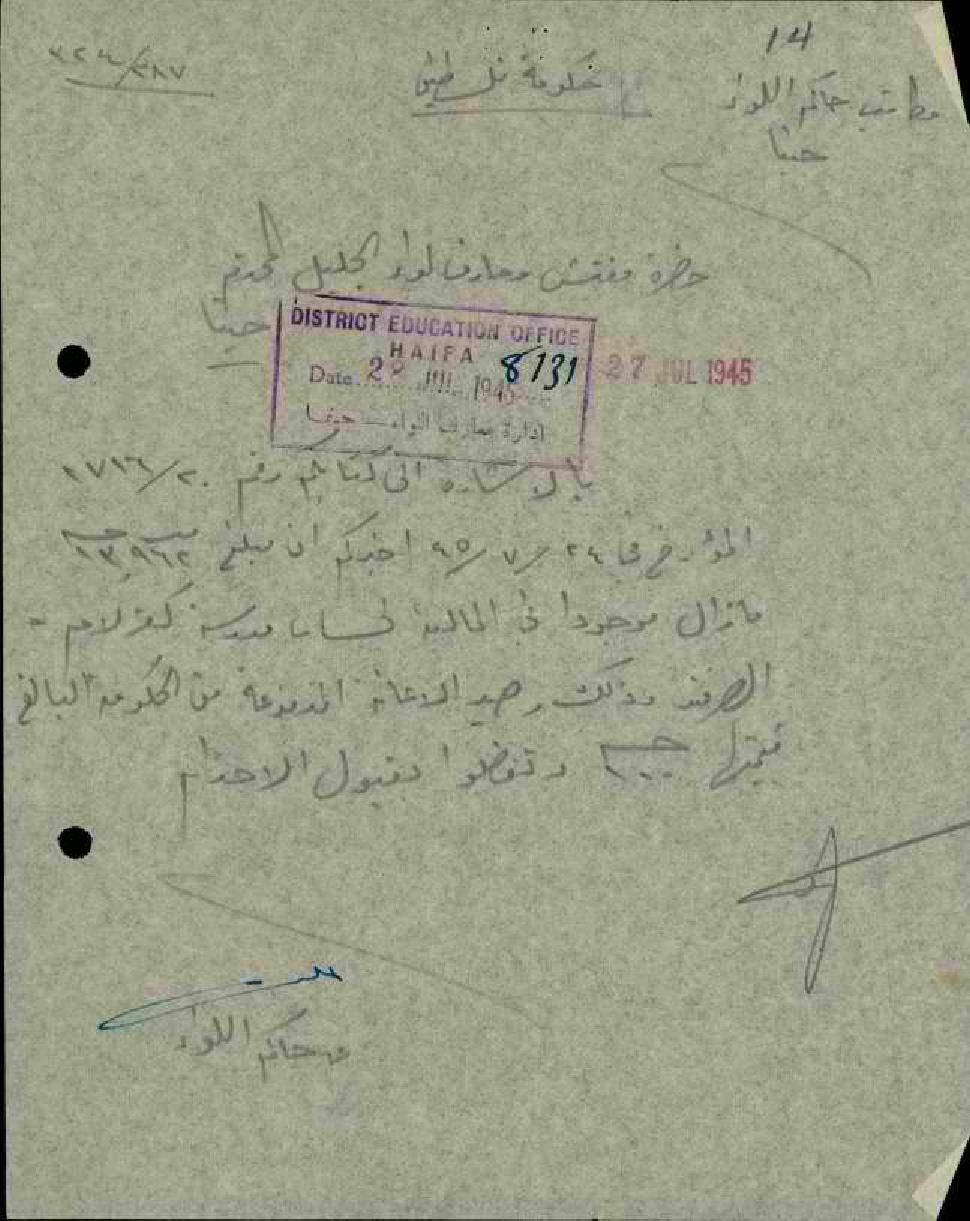 14
حكومة فلسطين
مكاتب حاكم اللواء
حيفا
حضرة مفتش معارف لواء الجليل المحترم
حيفا
DISTRICT EDUCATION OFFICE
HAIFA
8131
Date 28 JUL 1945
ادارة معارف اللواء — حيفا
27 JUL 1945
بالاشارة الى كتابكم رقم ١٧١٦/٢٠
المؤرخ في ٢٤/٧/٤٥ اخبركم ان مبلغ
ما زال موجودا في المالية لحساب مدرسة كفرلام -
الصرفند وذلك رصيد الاعانة المدفوعة من الحكومة البالغ
قيمتها وتفضلوا بقبول الاحترام
حاكم اللواء